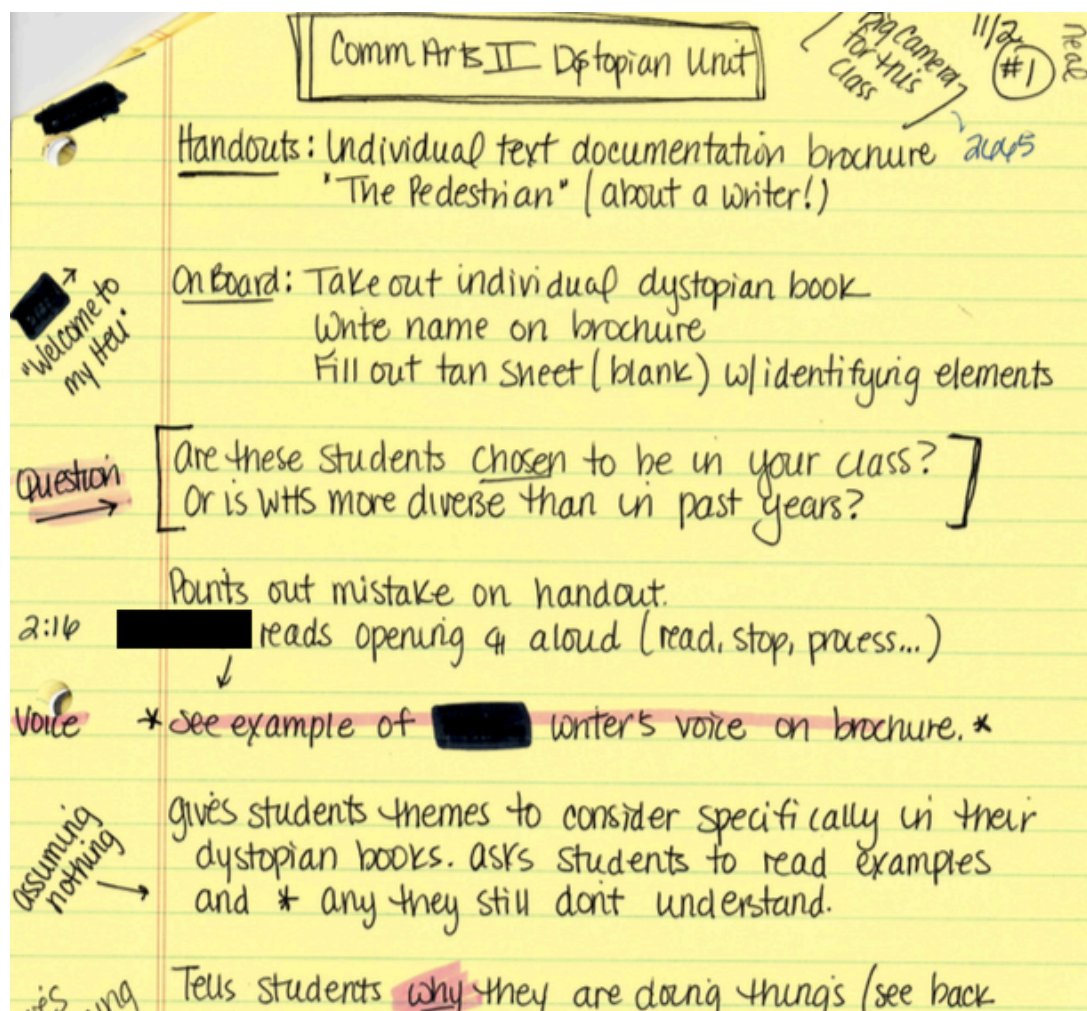 Comm Arts II Dystopian Unit
Big Camera
for this
class
11/2
#1
neal
Handouts: Individual text documentation brochure
2665
"The Pedestrian" (about a writer!)
On Board: Take out individual dystopian book
"Welcome to
my Hell"
Write name on brochure
Fill out tan sheet (blank) w/identifying elements
Question
Are these students chosen to be in your class?
Or is WHS more diverse than in past years?
Points out mistake on handout.
2:16 reads opening ¶ aloud (read, stop, process...)
Voice * See example of writer's voice on brochure. *
assuming
nothing
gives students themes to consider specifically in their
dystopian books. asks students to read examples
and * any they still dont understand.
Tells students why they are doing things (see back